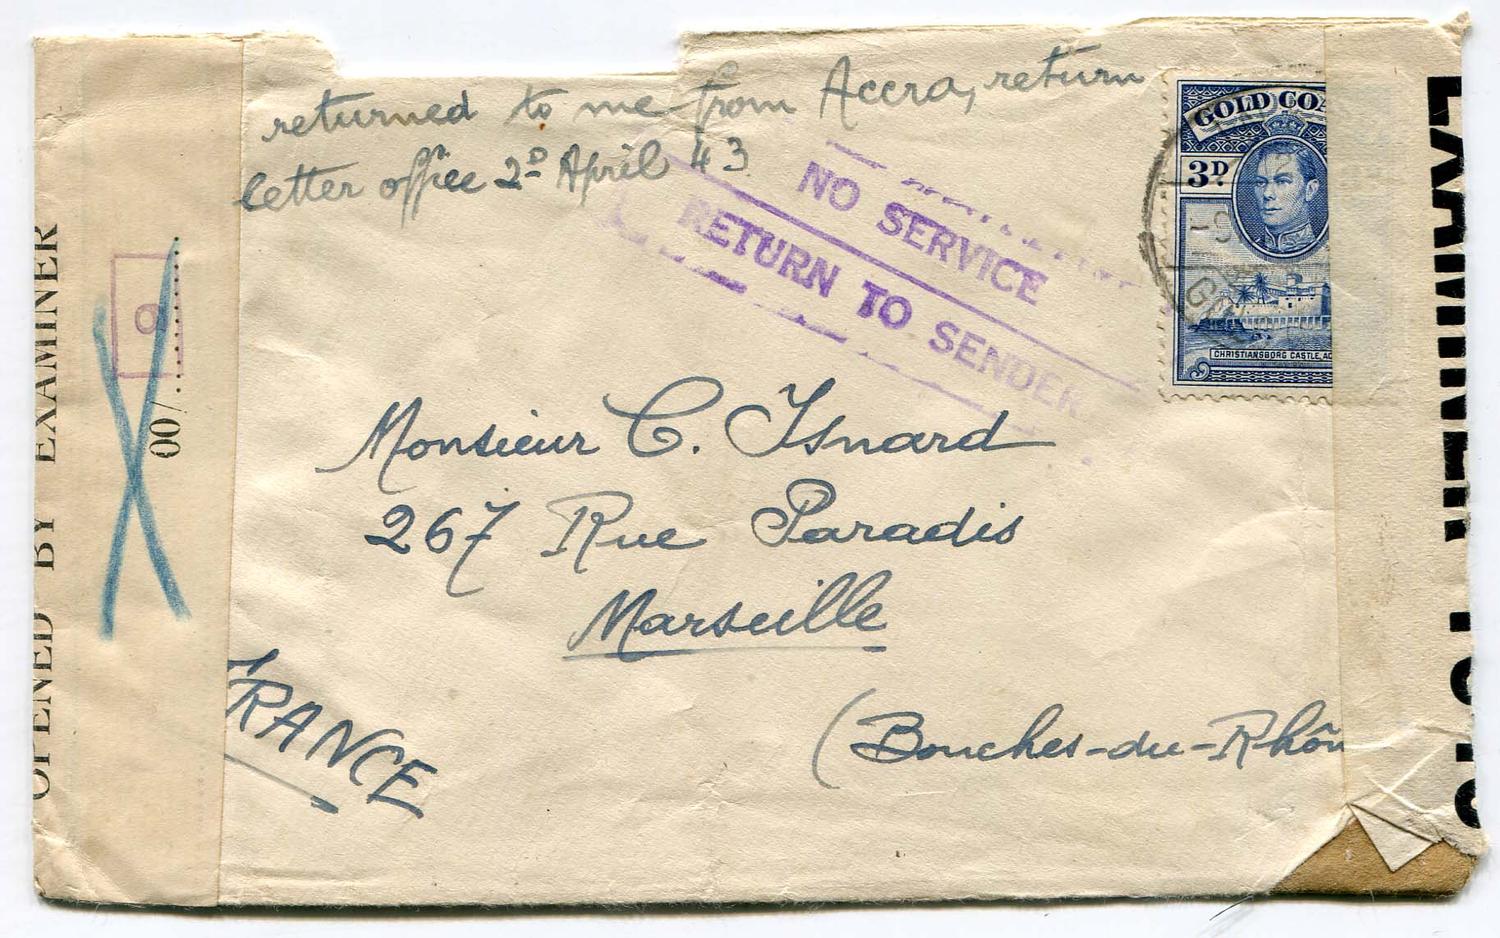 returned to me from Accra, return
letter office 2D April 43
NO SERVICE
RETURN TO SENDER
GOLD COA
3D.
CHRISTIANSBORG CASTLE, AC
Monsieur C. Isnard
267 Rue Paradis
Marseille
(Bouches-du-Rhôn
FRANCE
OPENED BY EXAMINER
00/
EXAMINER